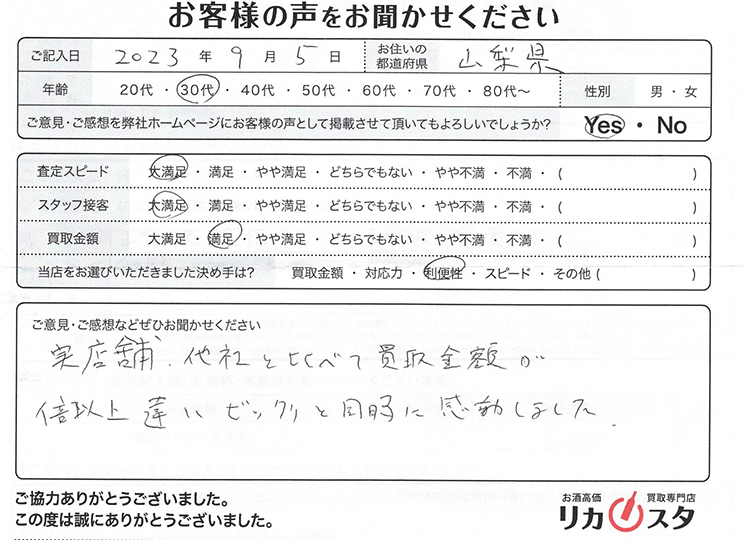 お客様の声をお聞かせください
ご記入日 2023 年 9 月 5 日 お住いの都道府県 山梨県
年齢 20代 ・ 30代 ・ 40代 ・ 50代 ・ 60代 ・ 70代 ・ 80代～ 性別 男 ・ 女
ご意見・ご感想を弊社ホームページにお客様の声として掲載させて頂いてもよろしいでしょうか? Yes ・ No
査定スピード 大満足 ・ 満足 ・ やや満足 ・ どちらでもない ・ やや不満 ・ 不満 ・ ( )
スタッフ接客 大満足 ・ 満足 ・ やや満足 ・ どちらでもない ・ やや不満 ・ 不満 ・ ( )
買取金額 大満足 ・ 満足 ・ やや満足 ・ どちらでもない ・ やや不満 ・ 不満 ・ ( )
当店をお選びいただきました決め手は? 買取金額 ・ 対応力 ・ 利便性 ・ スピード ・ その他 ( )
ご意見・ご感想などぜひお聞かせください
実店舗、他社と比べて買取金額が
倍以上違いビックリと同時に感動しました。
ご協力ありがとうございました。
この度は誠にありがとうございました。
お酒高価 買取専門店
リカスタ